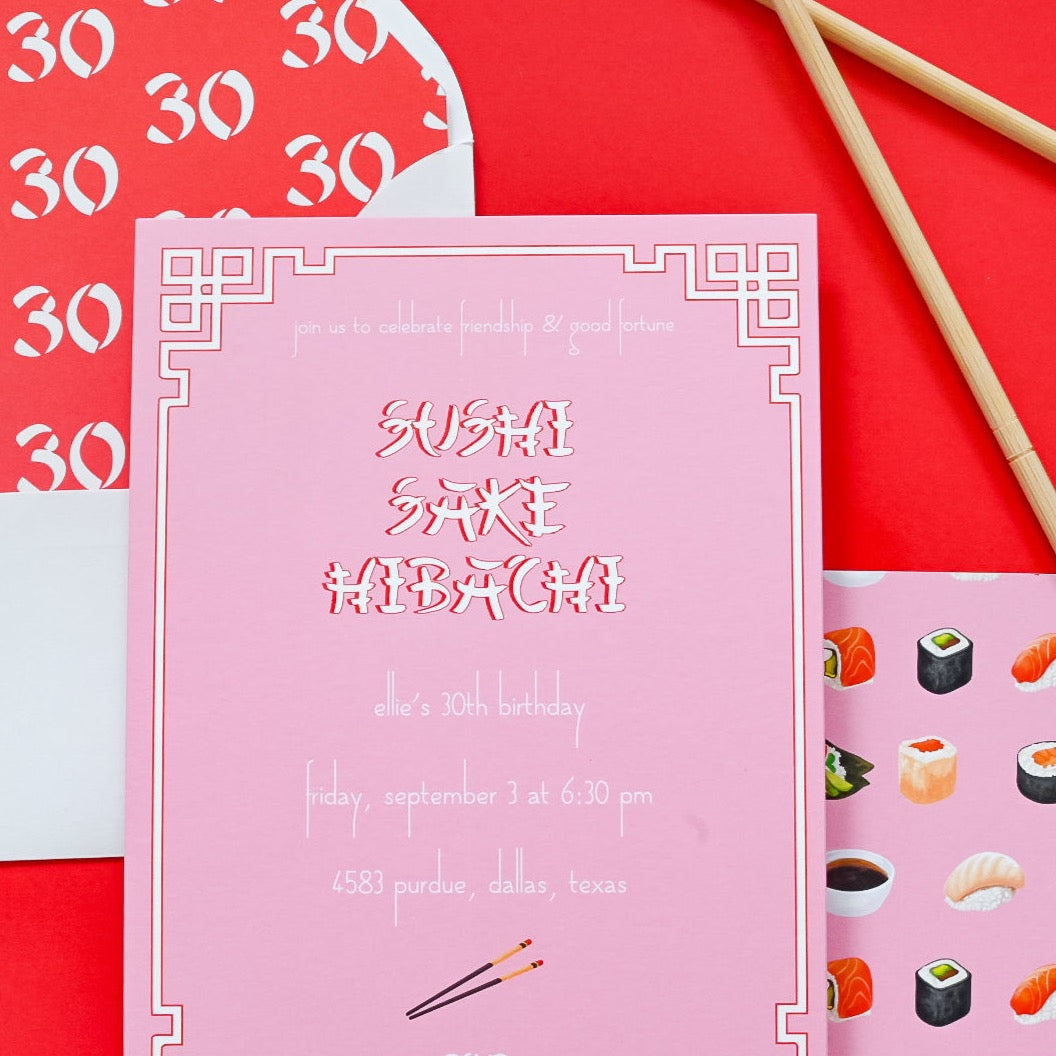 30 30
30
30 30
30
30
join us to celebrate friendship & good fortune
SUSHI
SAKE
HIBACHI
ellie's 30th birthday
friday, september 3 at 6:30 pm
4583 purdue, dallas, texas